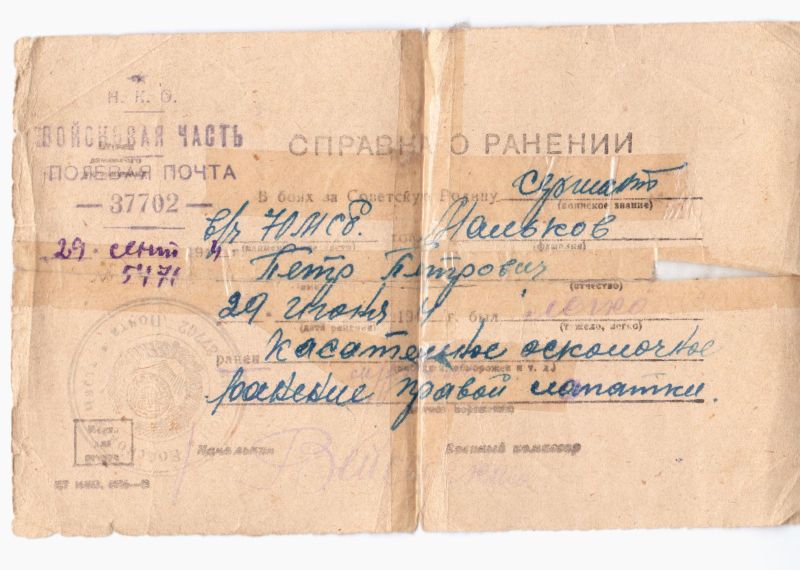 Н. К. О.
ВОЙСКОВАЯ ЧАСТЬ
ПОЛЕВАЯ ПОЧТА
— 37702 —
29. сент 194
5471
СПРАВКА О РАНЕНИИ
В боях за Советскую Родину сержант
(воинское звание)
в/ч 70 МСб. Мальков
(фамилия)
Петр Петрович
(отчество)
29 июня 194 г. был легко
(дата ранения) (тяжело, легко)
ранен касательное осколочное
ранение правой лопатки.
Место
для
печати
Начальник Военный комиссар